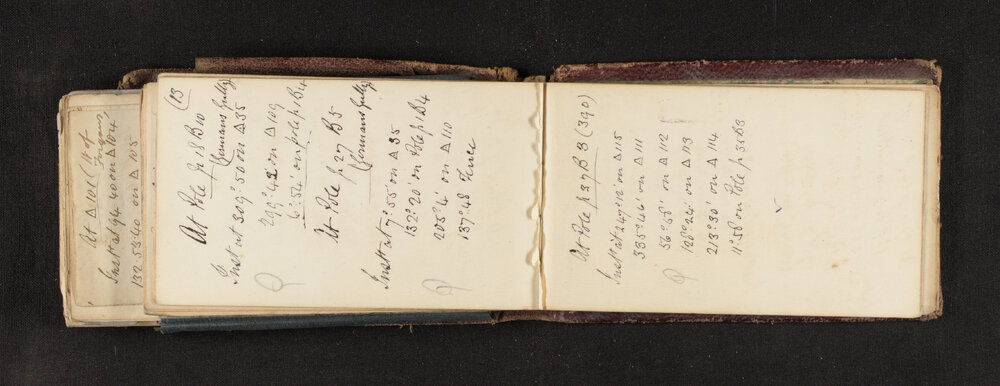 At Δ 101 (Ft of
Inst at 94.40 on Δ 104
132.53.40 on Δ 105
(13
At Pole p 18 B10
(Gormans Gully)
Inst at 309°.50 on Δ 35
299°.42 on Δ 109
6°.54' on pole p 1 B4
At Pole p 27 B5
(Gormans Gully)
Inst at 7°.55 on Δ 35
132°.20' on Pole p 1 B4
205°.4' on Δ 110
137°.48 Fence
At Pole p 37 B3 (390)
Inst at 247°.12' on Δ 115
335°.46' on Δ 111
56°.58' on Δ 112
128°.24' on Δ 113
213°.30' on Δ 114
11°.58 on Pole p 33 B3